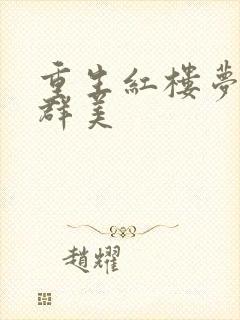 重生紅樓夢
群美
趙耀